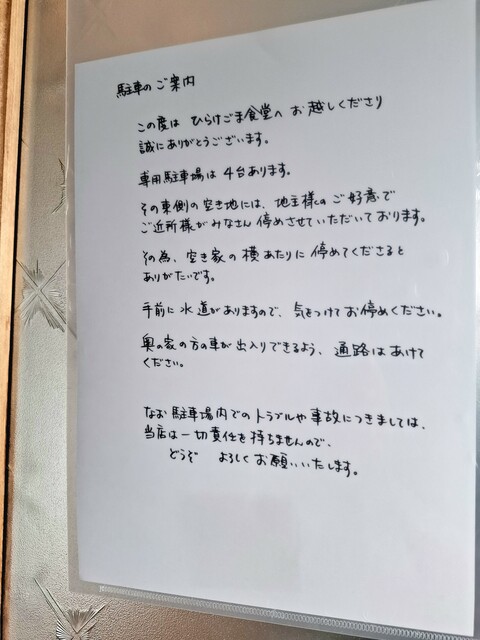 駐車のご案内
この度は ひらけごま食堂へ お越しくださり
誠にありがとうございます。
専用駐車場は 4台あります。
その東側の空き地には、地主様のご好意で
ご近所様がみなさん停めさせていただいております。
その為、空き家の横あたりに停めてくださると
ありがたいです。
手前に水道がありますので、気をつけてお停めください。
奥の家の方の車が出入りできるよう、通路はあけて
ください。
なお駐車場内でのトラブルや事故につきましては、
当店は一切責任を持ちませんので、
どうぞ よろしくお願いいたします。